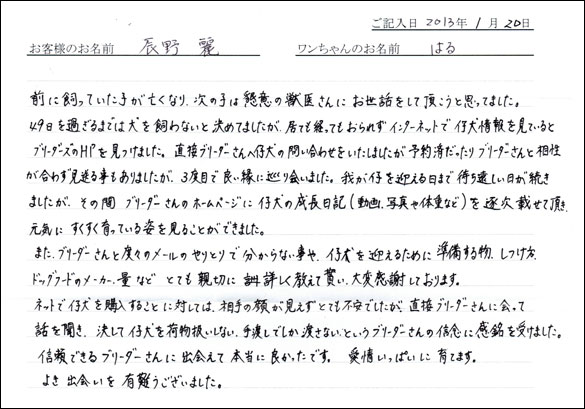 ご記入日 2013年 1月 20日
お客様のお名前 辰野 麗 ワンちゃんのお名前 はる
前に飼っていた子が亡くなり、次の子は懇意の獣医さんにお世話をして頂こうと思ってました。
49日を過ぎるまでは犬を飼わないと決めてましたが、居ても経ってもおられずインターネットで仔犬情報を見ていると
ブリーダーズのHPを見つけました。直接ブリーダーさんへ仔犬の問い合わせをいたしましたが予約済だったりブリーダーさんと相性
が合わず見送る事もありましたが、3度目で良い縁に巡り会いました。我が仔を迎える日まで待ち遠しい日が続き
ましたが、その間 ブリーダーさんのホームページに仔犬の成長日記(動画、写真や体重など)を逐次載せて頂き、
元気に すくすく育っている姿を見ることができました。
また、ブリーダーさんと度々のメールのやりとりで分からない事や、仔犬を迎えるために準備する物、しつけ方、
ドッグフードのメーカー、量など とても親切に 詳しく教えて貰い、大変感謝しております。
ネットで仔犬を購入することに対しては、相手の顔が見えずとても不安でしたが、直接ブリーダーさんに会って
話を聞き、決して仔犬を荷物扱いしない、手渡しでしか渡さないというブリーダーさんの信念に感銘を受けました。
信頼できるブリーダーさんに出会えて本当に良かったです。 愛情いっぱいに育てます。
よき出会いを有難うございました。